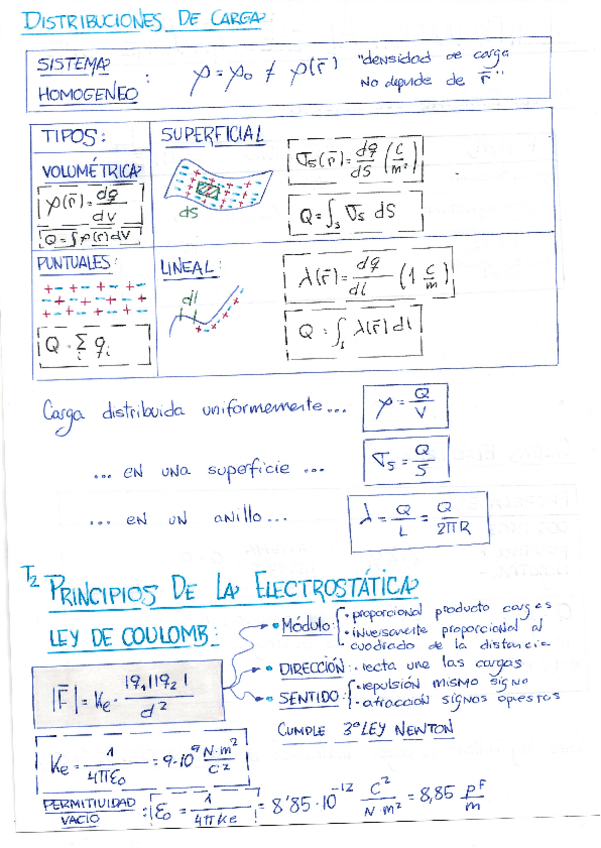 DISTRIBUCIONES DE CARGA:
SISTEMA HOMOGENEO : ρ = ρ₀ ≠ ρ(r̄) "densidad de carga
No depende de r̄"
TIPOS:
VOLUMÉTRICA
ρ(r̄) = dq/dV
Q = ∫ ρ(r) dV
SUPERFICIAL
dS
σs(r̄) = dq/dS (C/m²)
Q = ∫s σs dS
PUNTUALES:
+ - + - + - + - + -
Q = Σi qi
LINEAL:
dl
λ(r̄) = dq/dl (1 C/m)
Q = ∫l λ(r̄) dl
Carga distribuida uniformemente... ρ = Q/V
... en una superficie ... σs = Q/S
... en un anillo... λ = Q/L = Q/2πR
T2 PRINCIPIOS DE LA ELECTROSTÁTICA
LEY DE COULOMB:
|F̄| = Ke · |q₁||q₂|/d²
• Módulo: • proporcional producto cargas
• inversamente proporcional al
cuadrado de la distancia
• DIRECCIÓN: • recta une las cargas
• SENTIDO: • repulsión mismo signo
• atracción signos opuestos
CUMPLE 3ª LEY NEWTON
Ke = 1/4πε₀ = 9·10⁹ N·m²/C²
PERMITIVIDAD VACÍO : ε₀ = 1/4πke = 8'85·10⁻¹² C²/N·m² = 8,85 pF/m